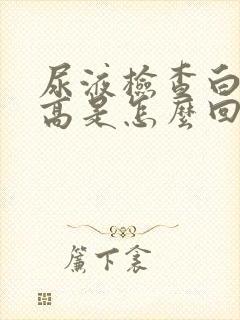 尿液檢查白
高是怎麼回
簾下衾